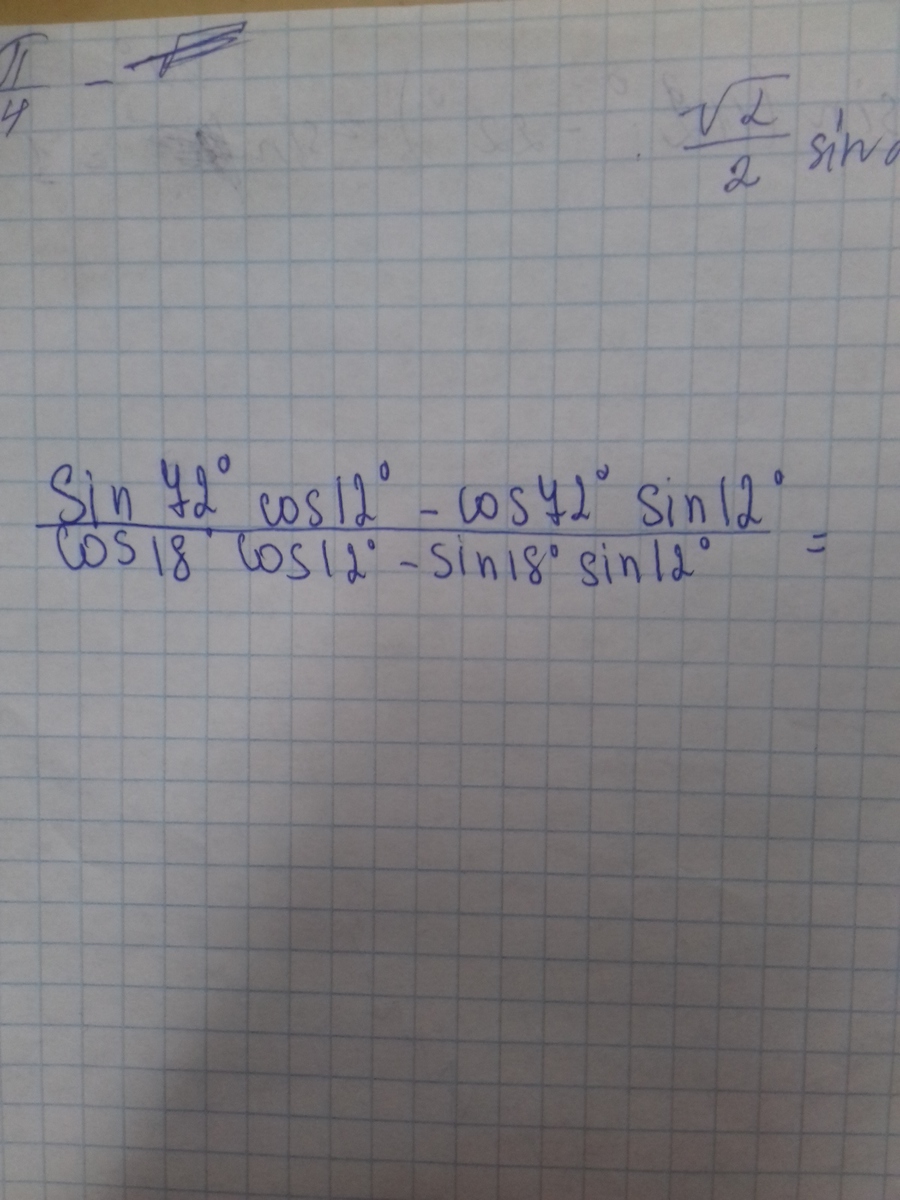 π/4 -
√2/2 sin
Sin 72° cos12° - cos72° sin12°
cos18° cos12° - sin18° sin12° =